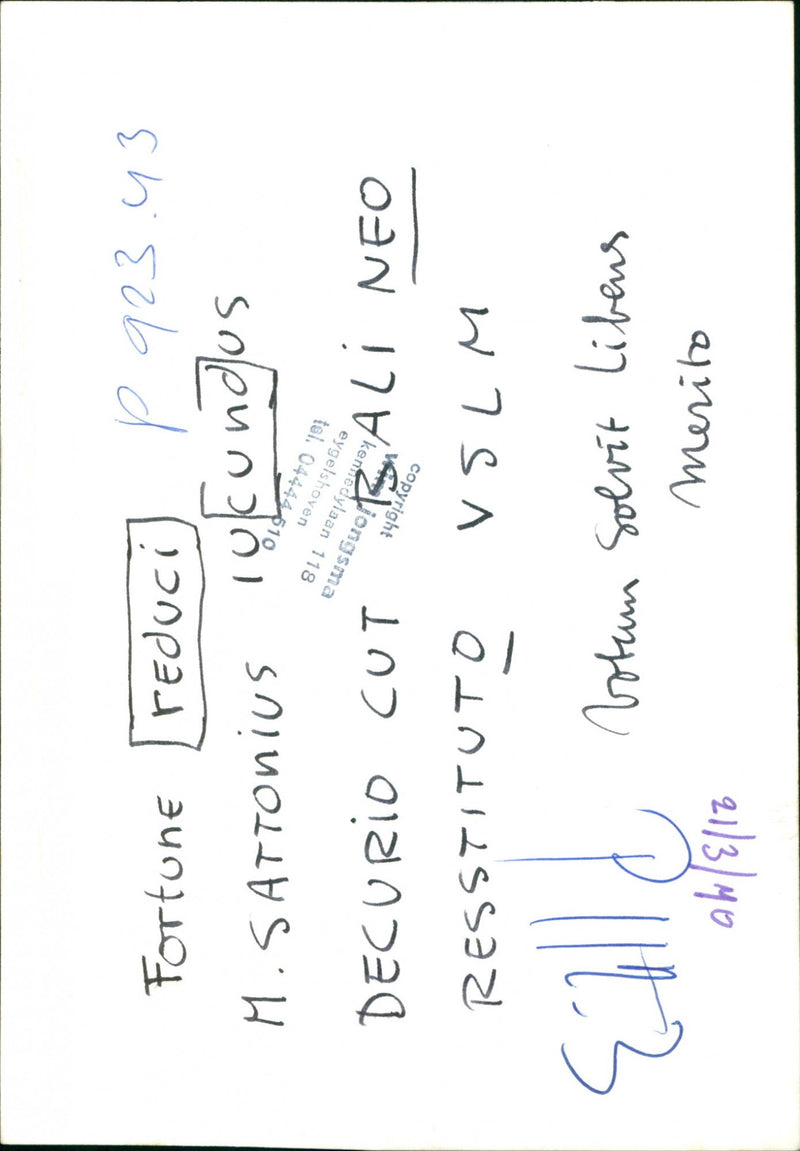 P 923.43
Fortune reduci
M. SATTONIUS IUCUNDUS
DECURIO CUT BALINEO
RESSTITUTO VSLM
Votum Solvit Libens
Merito
copyright
wim jongsma
kennedylaan 118
eygelshoven
tel. 04444 610